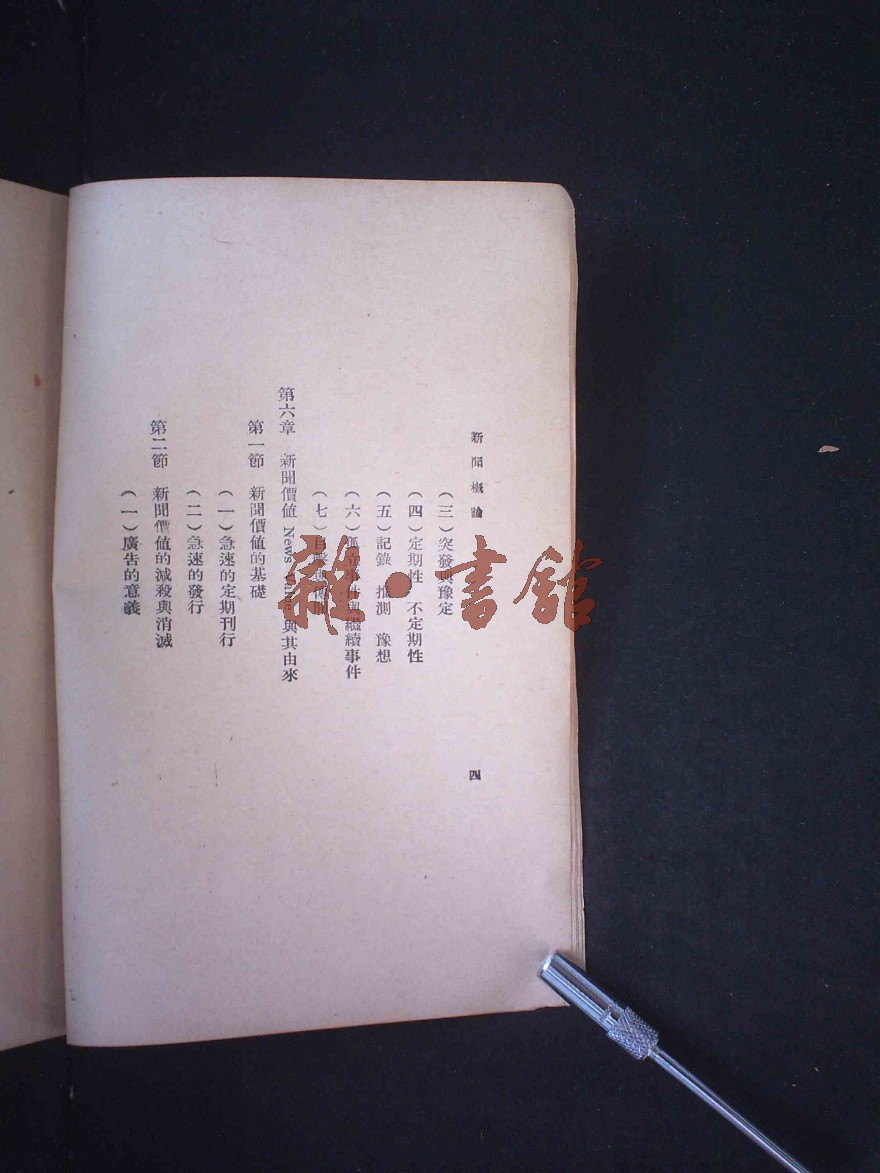 新聞概論
四
(三)突發與豫定
(四)定期性 不定期性
(五)記錄 推測 豫想
(六)孤立事件與繼續事件
(七)目擊
第六章 新聞價値 News Value 與其由來
第一節 新聞價値的基礎
(一)急速的定期刊行
(二)急速的發行
第二節 新聞價値的減殺與消滅
(一)廣告的意義
雜·書館